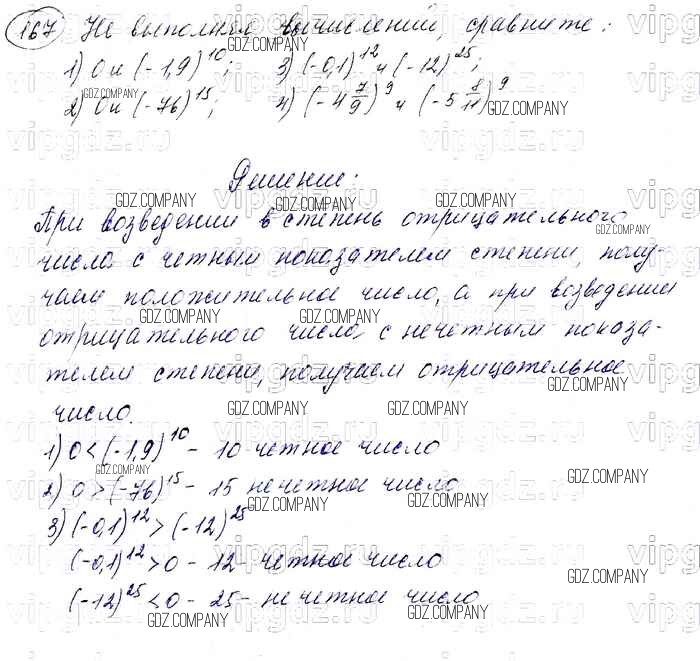 167 Не выполняя вычислений, сравните:
1) 0 и (-1,9)^10; 3) (-0,1)^12 и (-12)^25;
2) 0 и (-76)^15; 4) (-4 7/9)^9 и (-5 8/11)^9
Решение:
При возведении в степень отрицательного
числа с четным показателем степени, полу-
чаем положительное число, а при возведении
отрицательного числа с нечетным показа-
телем степени, получаем отрицательное
число.
1) 0 < (-1,9)^10 - 10 четное число
2) 0 > (-76)^15 - 15 нечетное число
3) (-0,1)^12 > (-12)^25
(-0,1)^12 > 0 - 12 - четное число
(-12)^25 < 0 - 25 - нечетное число
GDZ.COMPANY
vipgdz.ru